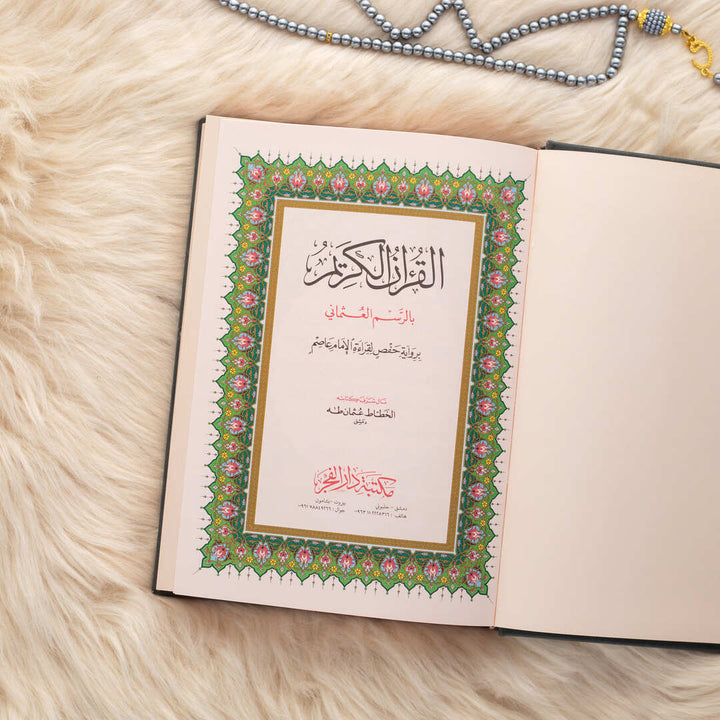 القُرآنُ الكَرِيمُ
بالرَّسمِ العُثماني
بروَايَةِ حَفصٍ لِقِرَاءَةِ الإمَامِ عَاصِم
نال شرف كتابته
الخطاط عُثمان طه
دمشق
مكتبة دار الفجر
دمشق - حلبوني
بيروت -
هاتف :
جوال :